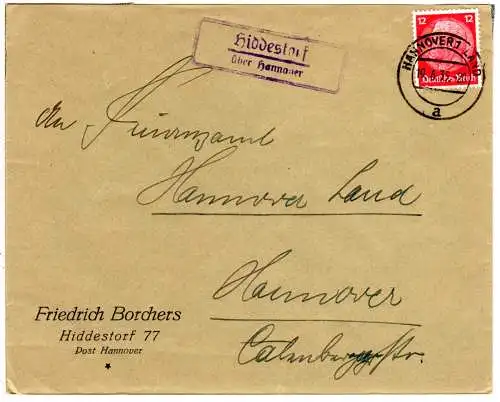 Hiddestorf
über Hannover
12 12
Deutsches Reich
HANNOVER 1 LAND
a
An Finanzamt
Hannover Land
Hannover
Calenbergerstr.
Friedrich Borchers
Hiddestorf 77
Post Hannover